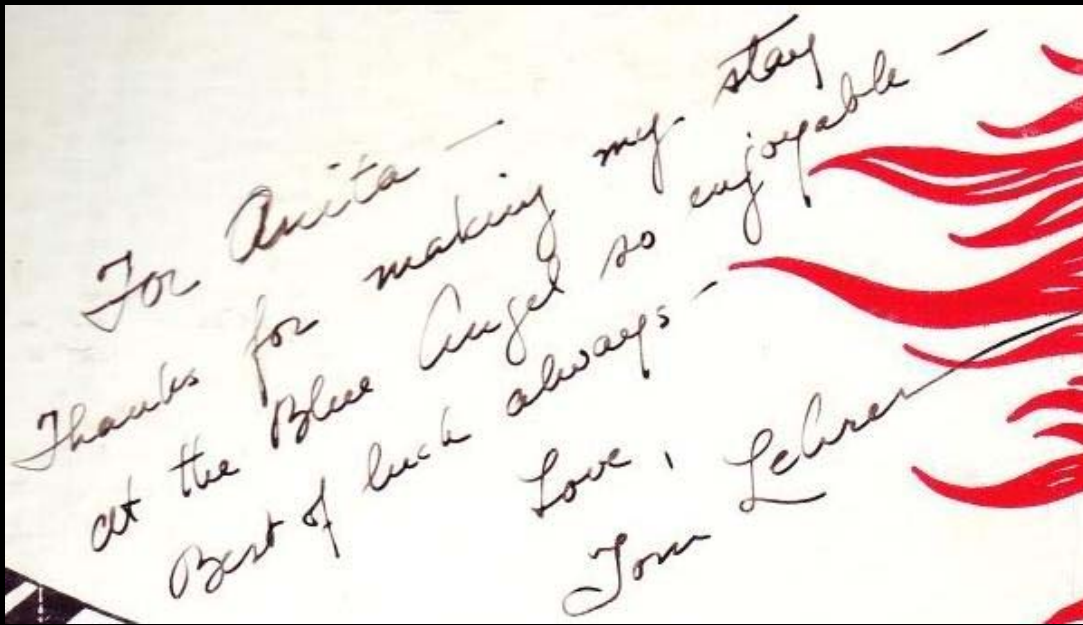 For Anita —
Thanks for making my stay
at the Blue Angel so enjoyable —
Best of luck always —
Love,
Tom Lehrer